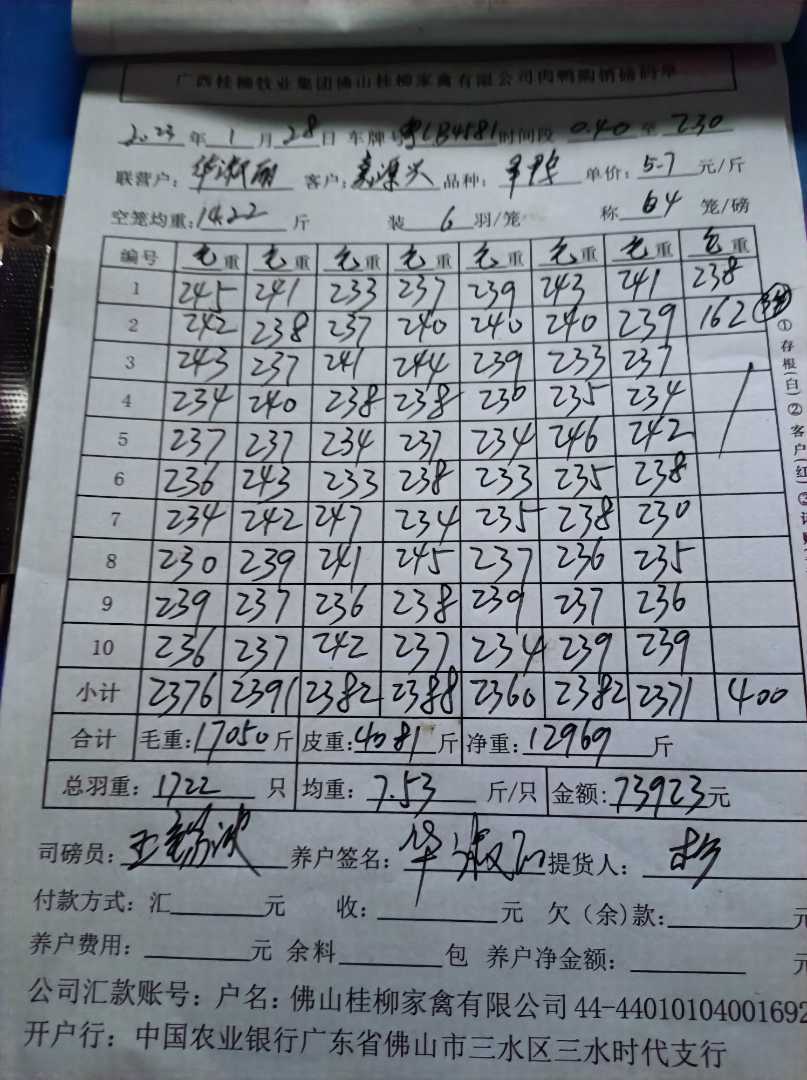 广西桂柳牧业集团佛山桂柳家禽有限公司肉鸭购销磅码单
2023年1月28日 车牌号粤LB4581时间段 0.40至230
联营户: 客户: 品种: 单价:5.7元/斤
空笼均重:14.22斤 装6羽/笼 称64笼/磅
编号 毛重 毛重 毛重 毛重 毛重 毛重 毛重 毛重
1 245 241 233 237 239 243 241 238
2 242 238 237 240 240 240 239 162
3 243 237 241 244 239 233 237
4 234 240 238 238 230 235 234
5 237 237 234 237 234 246 242
6 236 243 233 238 233 235 238
7 234 242 247 234 235 238 230
8 230 239 241 245 237 236 235
9 239 237 236 238 239 237 236
10 236 237 242 237 234 239 239
小计 2376 2391 2382 2388 2360 2382 2371 400
合计 毛重:17050斤 皮重:4081斤 净重:12969斤
总羽重:1722只 均重:7.53斤/只 金额:73923元
司磅员: 养户签名: 提货人:
付款方式:汇 元 收: 元 欠(余)款: 元
养户费用: 元 余料 包 养户净金额: 元
公司汇款账号:户名:佛山桂柳家禽有限公司 44-44010104001692
开户行:中国农业银行广东省佛山市三水区三水时代支行
①存根(白)②客户(红)③